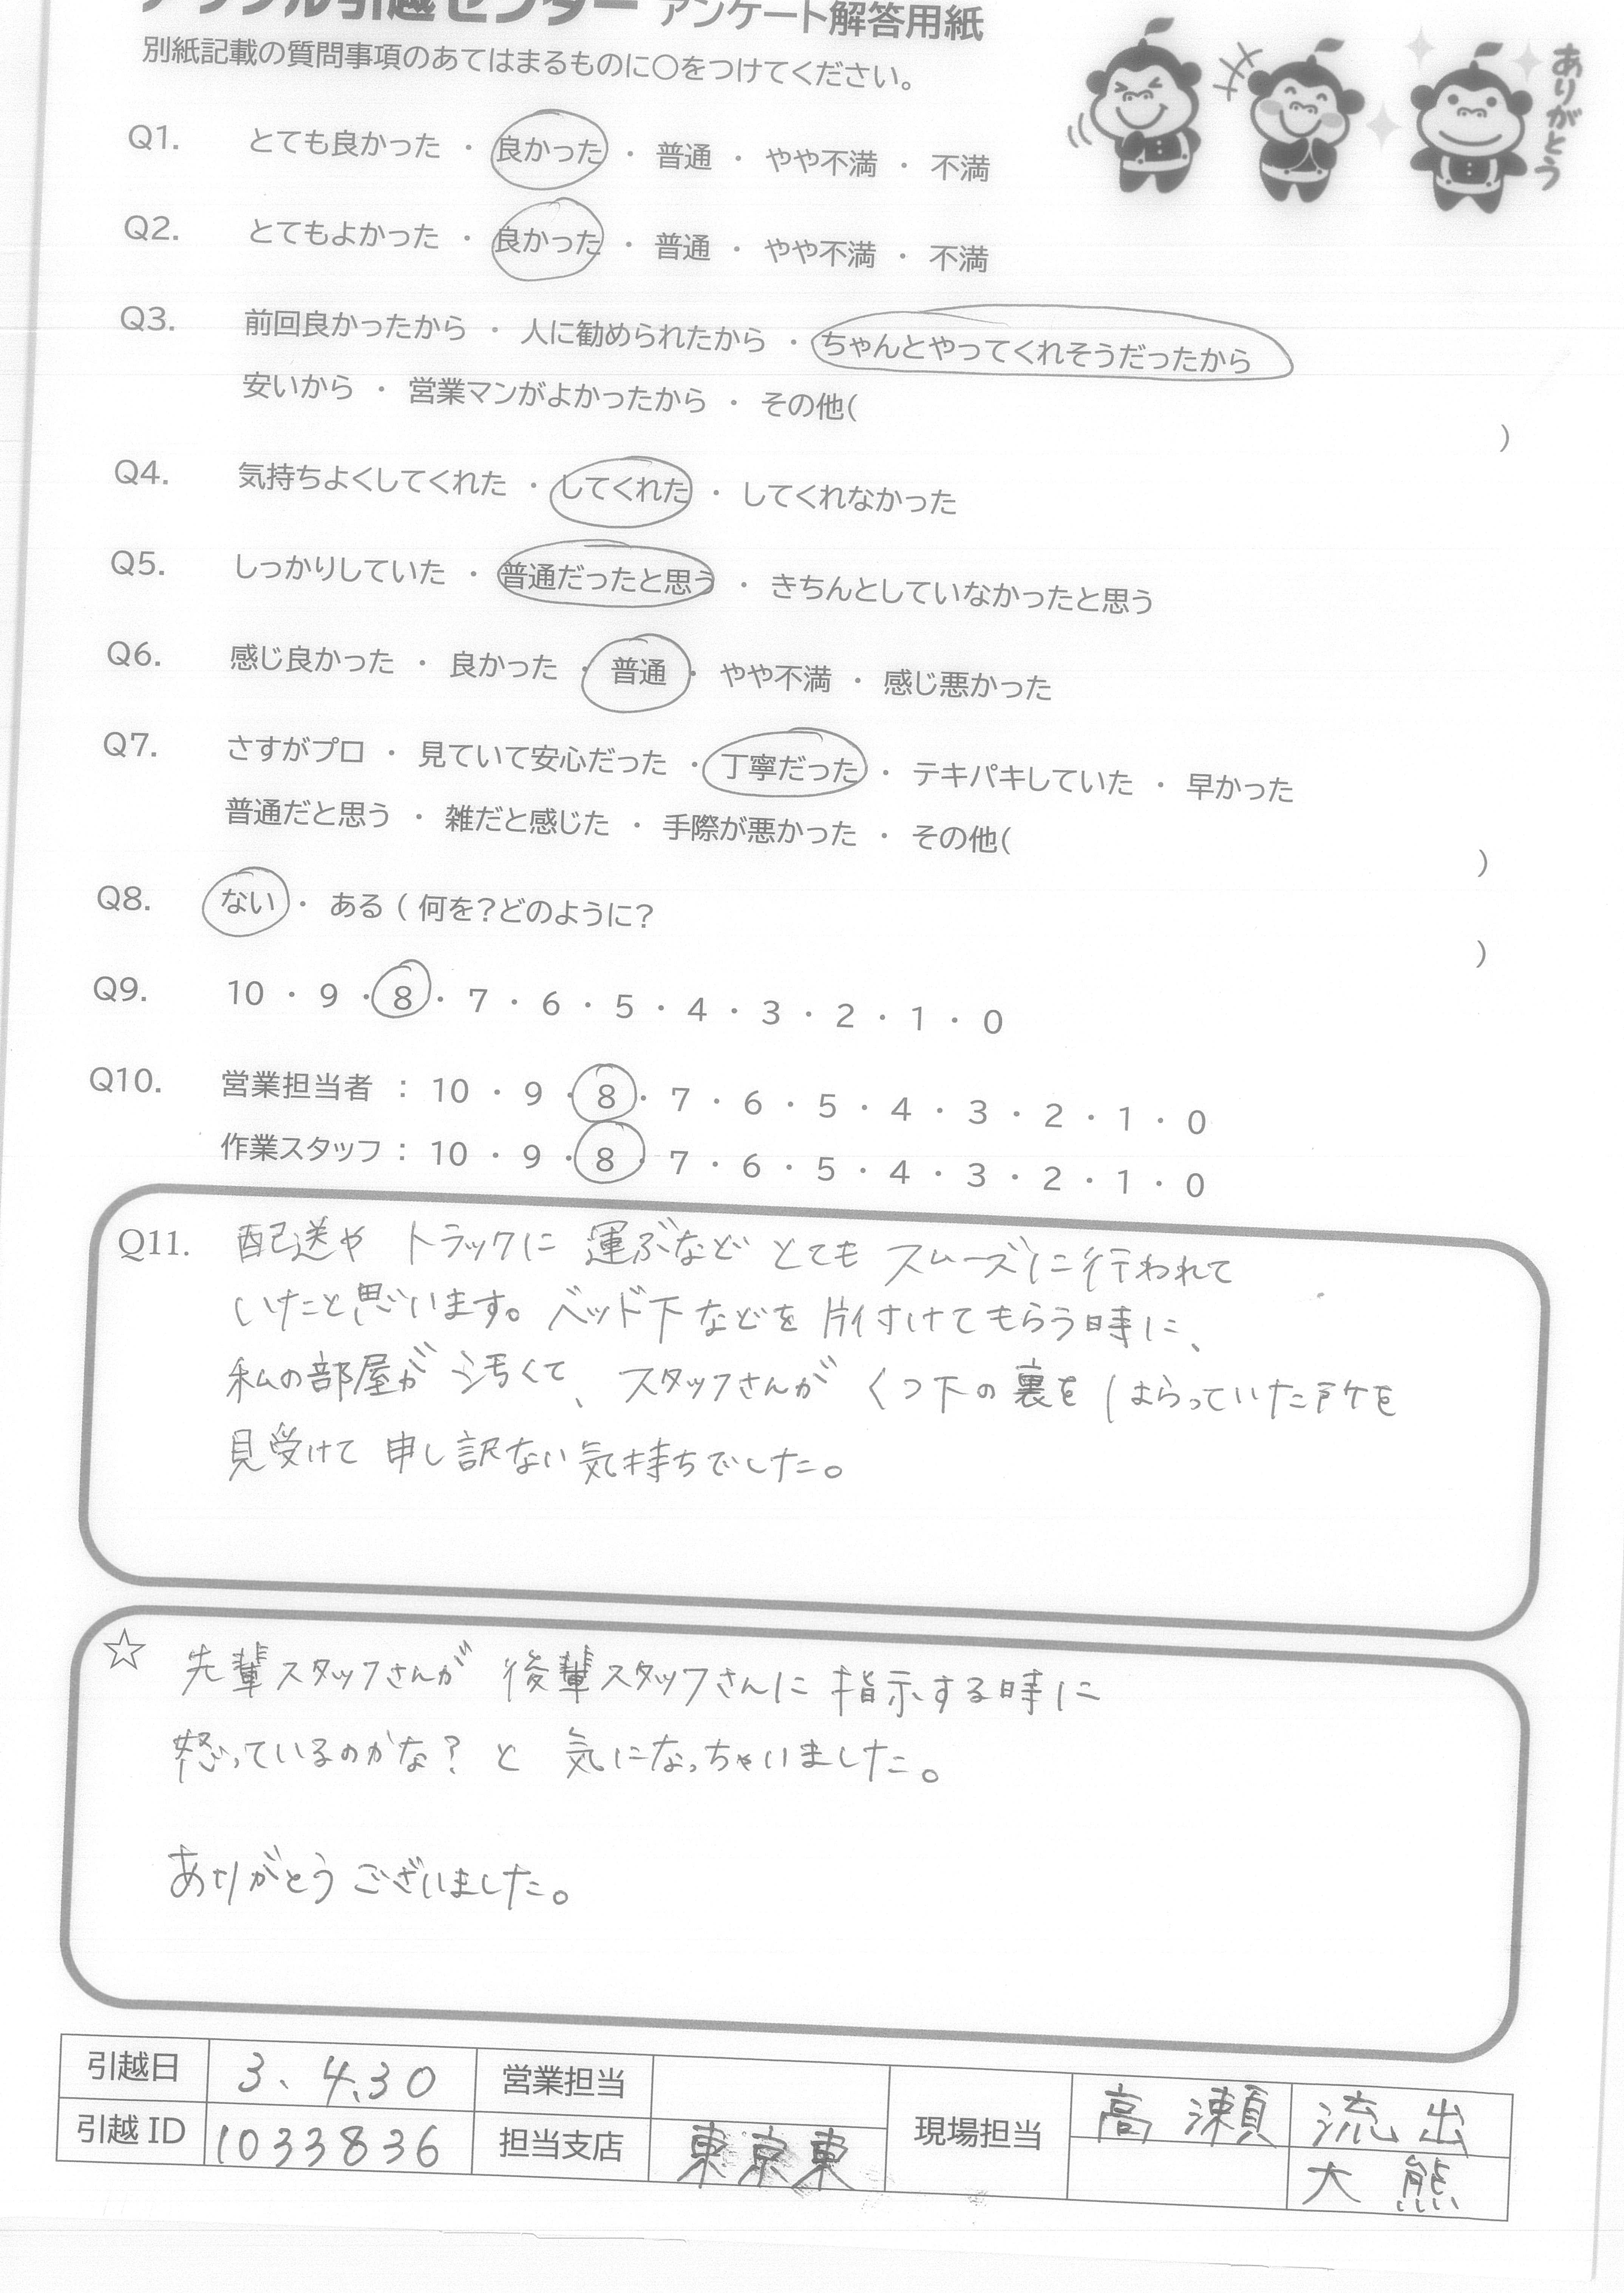 アップル引越センター アンケート解答用紙
別紙記載の質問事項のあてはまるものに〇をつけてください。
ありがとう
Q1. とても良かった ・ 良かった ・ 普通 ・ やや不満 ・ 不満
Q2. とてもよかった ・ 良かった ・ 普通 ・ やや不満 ・ 不満
Q3. 前回良かったから ・ 人に勧められたから ・ ちゃんとやってくれそうだったから
安いから ・ 営業マンがよかったから ・ その他( )
Q4. 気持ちよくしてくれた ・ してくれた ・ してくれなかった
Q5. しっかりしていた ・ 普通だったと思う ・ きちんとしていなかったと思う
Q6. 感じ良かった ・ 良かった ・ 普通 ・ やや不満 ・ 感じ悪かった
Q7. さすがプロ ・ 見ていて安心だった ・ 丁寧だった ・ テキパキしていた ・ 早かった
普通だと思う ・ 雑だと感じた ・ 手際が悪かった ・ その他( )
Q8. ない ・ ある ( 何を?どのように? )
Q9. 10 ・ 9 ・ 8 ・ 7 ・ 6 ・ 5 ・ 4 ・ 3 ・ 2 ・ 1 ・ 0
Q10. 営業担当者 : 10 ・ 9 ・ 8 ・ 7 ・ 6 ・ 5 ・ 4 ・ 3 ・ 2 ・ 1 ・ 0
作業スタッフ : 10 ・ 9 ・ 8 ・ 7 ・ 6 ・ 5 ・ 4 ・ 3 ・ 2 ・ 1 ・ 0
Q11. 配送や トラックに 運ぶなど とても スムーズに行われて
いたと思います。ベッド下などを 片付けてもらう時に、
私の部屋が 汚くて、スタッフさんが くつ下の裏を はらっていた所を
見受けて 申し訳ない気持ちでした。
☆ 先輩スタッフさんが 後輩スタッフさんに 指示する時に
怒っているのかな? と 気になっちゃいました。
ありがとうございました。
引越日 3、4.30 営業担当 現場担当 高瀬 流出
引越ID 1033836 担当支店 東京東 大熊